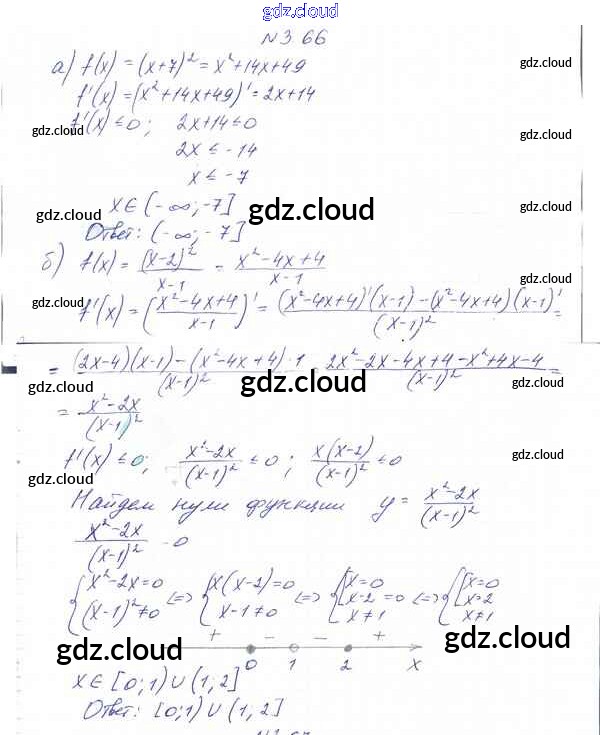 gdz.cloud
№ 3 66
gdz.cloud
а) f(x) = (x+7)² = x²+14x+49
f'(x) = (x²+14x+49)' = 2x+14
gdz.cloud gdz.cloud
f'(x) ≤ 0; 2x+14 ≤ 0
2x ≤ -14
x ≤ -7
x∈ (-∞; -7]
gdz.cloud gdz.cloud gdz.cloud
Ответ: (-∞; -7]
б) f(x) = (x-2)²/(x-1) = (x²-4x+4)/(x-1)
gdz.cloud gdz.cloud
f'(x) = ((x²-4x+4)/(x-1))' = ((x²-4x+4)'(x-1) - (x²-4x+4)(x-1)')/(x-1)² =
= ((2x-4)(x-1) - (x²-4x+4)·1)/(x-1)² = (2x²-2x-4x+4-x²+4x-4)/(x-1)² =
gdz.cloud gdz.cloud gdz.cloud
= (x²-2x)/(x-1)²
f'(x) ≤ 0; (x²-2x)/(x-1)² ≤ 0; x(x-2)/(x-1)² ≤ 0
gdz.cloud gdz.cloud
Найдем нули функции y = (x²-2x)/(x-1)²
(x²-2x)/(x-1)² = 0
gdz.cloud gdz.cloud
{x²-2x=0 <=> {x(x-2)=0 <=> {[x=0 <=> {[x=0
(x-1)²≠0 x-1≠0 x-2=0 x=2
x≠1 x≠1
+ - - +
gdz.cloud gdz.cloud gdz.cloud
0 1 2 x
x∈ [0;1) ∪ (1,2]
Ответ: [0;1) ∪ (1,2]